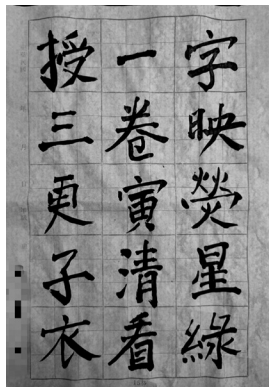 字映熒星綠
一卷寅清看
授三更子衣